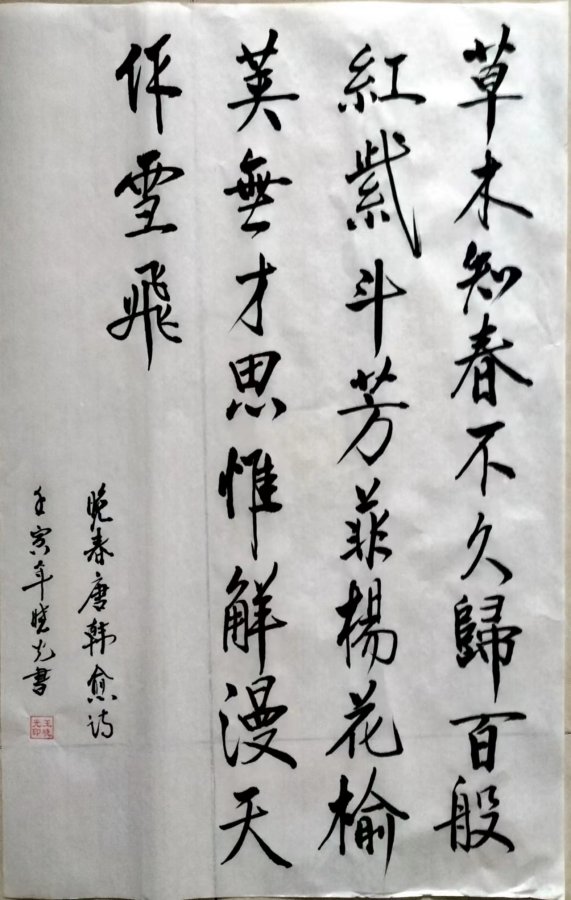 草木知春不久歸百般
紅紫斗芳菲楊花榆
荚無才思惟解漫天
作雪飛
晚春唐韩愈诗
壬寅年晓光書
王晓光印